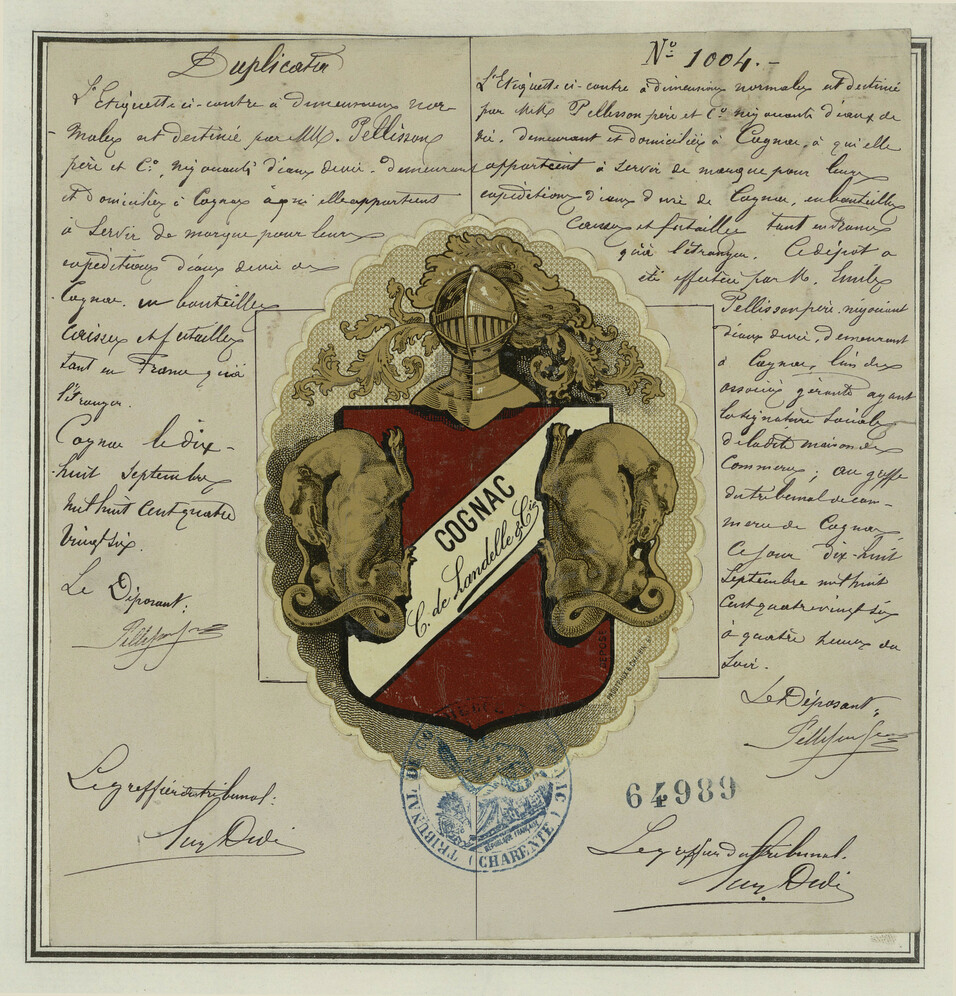 Duplicata
L'Etiquette ci-contre à dimensions nor-
males est destiné par MM. Pellisson
père et Cº, négociants d'eaux devie, demeurant
et domiciliés à Cognac à qui elle appartient
à servir de marque pour leurs
expéditions d'eaux devie de
Cognac, en bouteilles
Caisses et futailles
tant en France qu'à
l'étranger.
Cognac le dix-
huit Septembre
mil huit cent quatre
vingt six.
Le Déposant:
Le greffier du tribunal:
Nº 1004.-
L'Etiquette ci-contre à dimensions normales est destiné
par MM. Pellisson père et Cº négociants d'eaux de
vie, demeurant et domiciliés à Cognac, à qui elle
appartient à servir de marque pour leurs
expéditions d'eaux d'vie de Cognac, en bouteilles
Caisses et futailles tant en France
qu'à l'étranger. Ce dépôt a
été effectué par M. Emile
Pellisson père, négociant
d'eaux devie, demeurant
à Cognac, l'un des
associés gérants ayant
la signature sociale
de la dite maison de
Commerce; au greffe
du tribunal de com-
merce de Cognac
Ce jour dix-huit
Septembre mil huit
Cent quatre vingt six
à quatre heures du
Soir.
Le Déposant:
64989
Le greffier du tribunal.
COGNAC
C. de Landelle & Cie
TRIBUNAL DE CO
NAC
(CHARENTE)
REPUBLIQUE FRANÇAISE